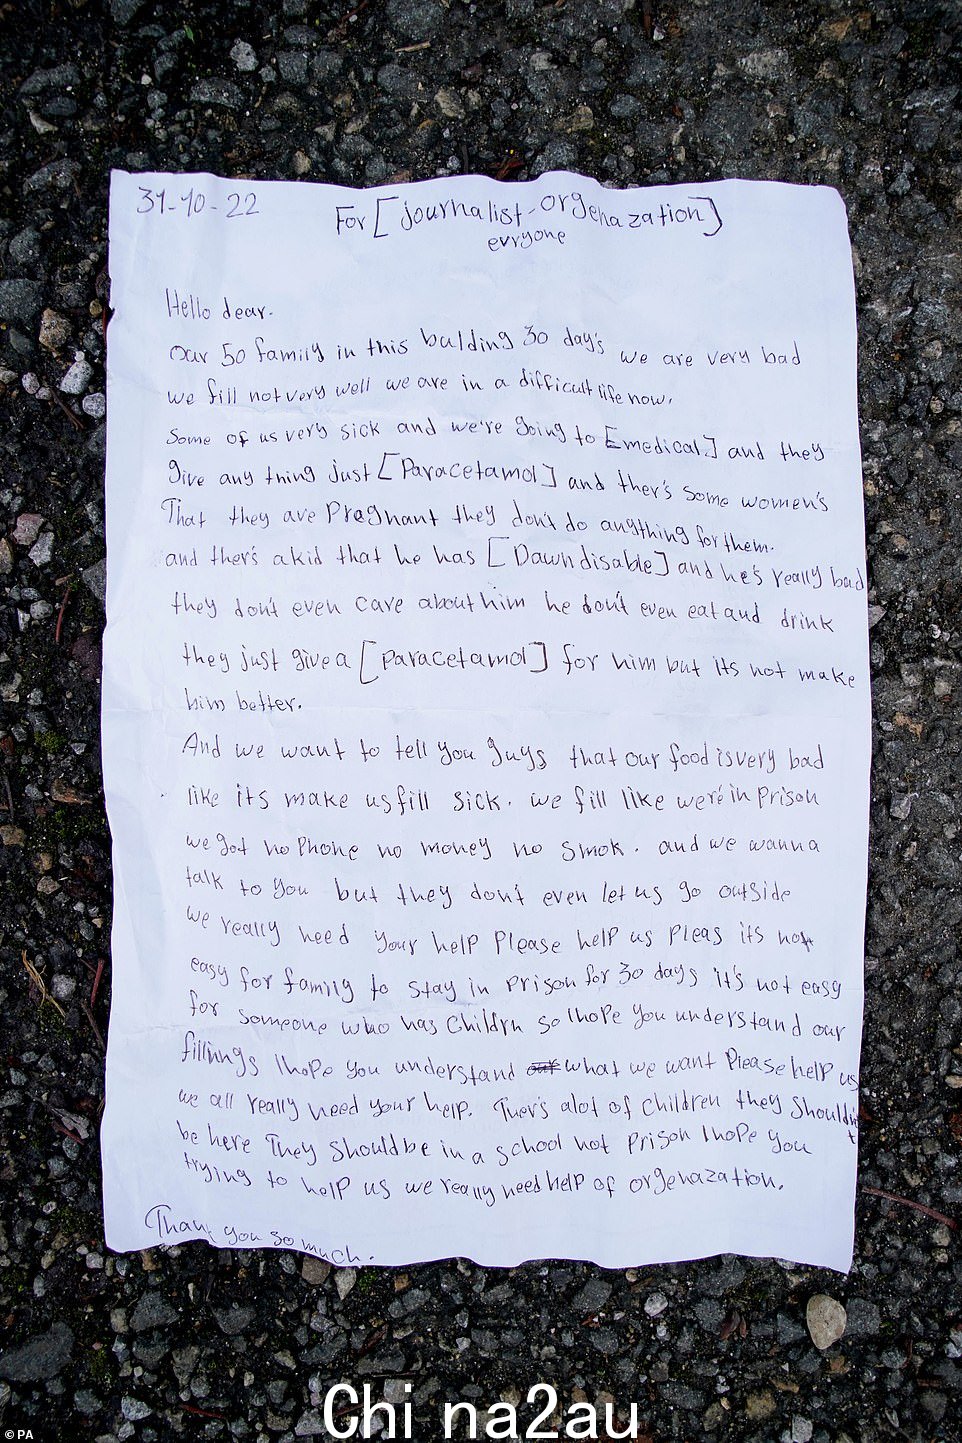 31-10-22
For [journalist-orgenazation]
evryone
Hello dear.
Our 50 family in this bulding 30 day's we are very bad
we fill not very well we are in a difficult life now.
Some of us very sick and we're going to [medical] and they
give any thing just [Paracetamol] and ther's some women's
That they are Pregnant they don't do anything for them.
and ther's a kid that he has [Dawn disable] and he's really bad
they don't even care about him he don't even eat and drink
they just give a [paracetamol] for him but its not make
him better.
And we want to tell you guys that our food is very bad
like its make us fill sick. we fill like were'in prison
we got no Phone no money no smok. and we wanna
talk to you but they don't even let us go outside
we really need your help Please help us pleas its not
easy for family to stay in prison for 30 days it's not easy
for someone who has childrn so I hope you understand our
fillings I hope you understand what we want Please help us
we all really need your help. Ther's alot of children they shouldn't
be here They should be in a school not prison I hope you
trying to help us we really need help of orgenazation.
Thank you so much.
© PA
Chi na2au